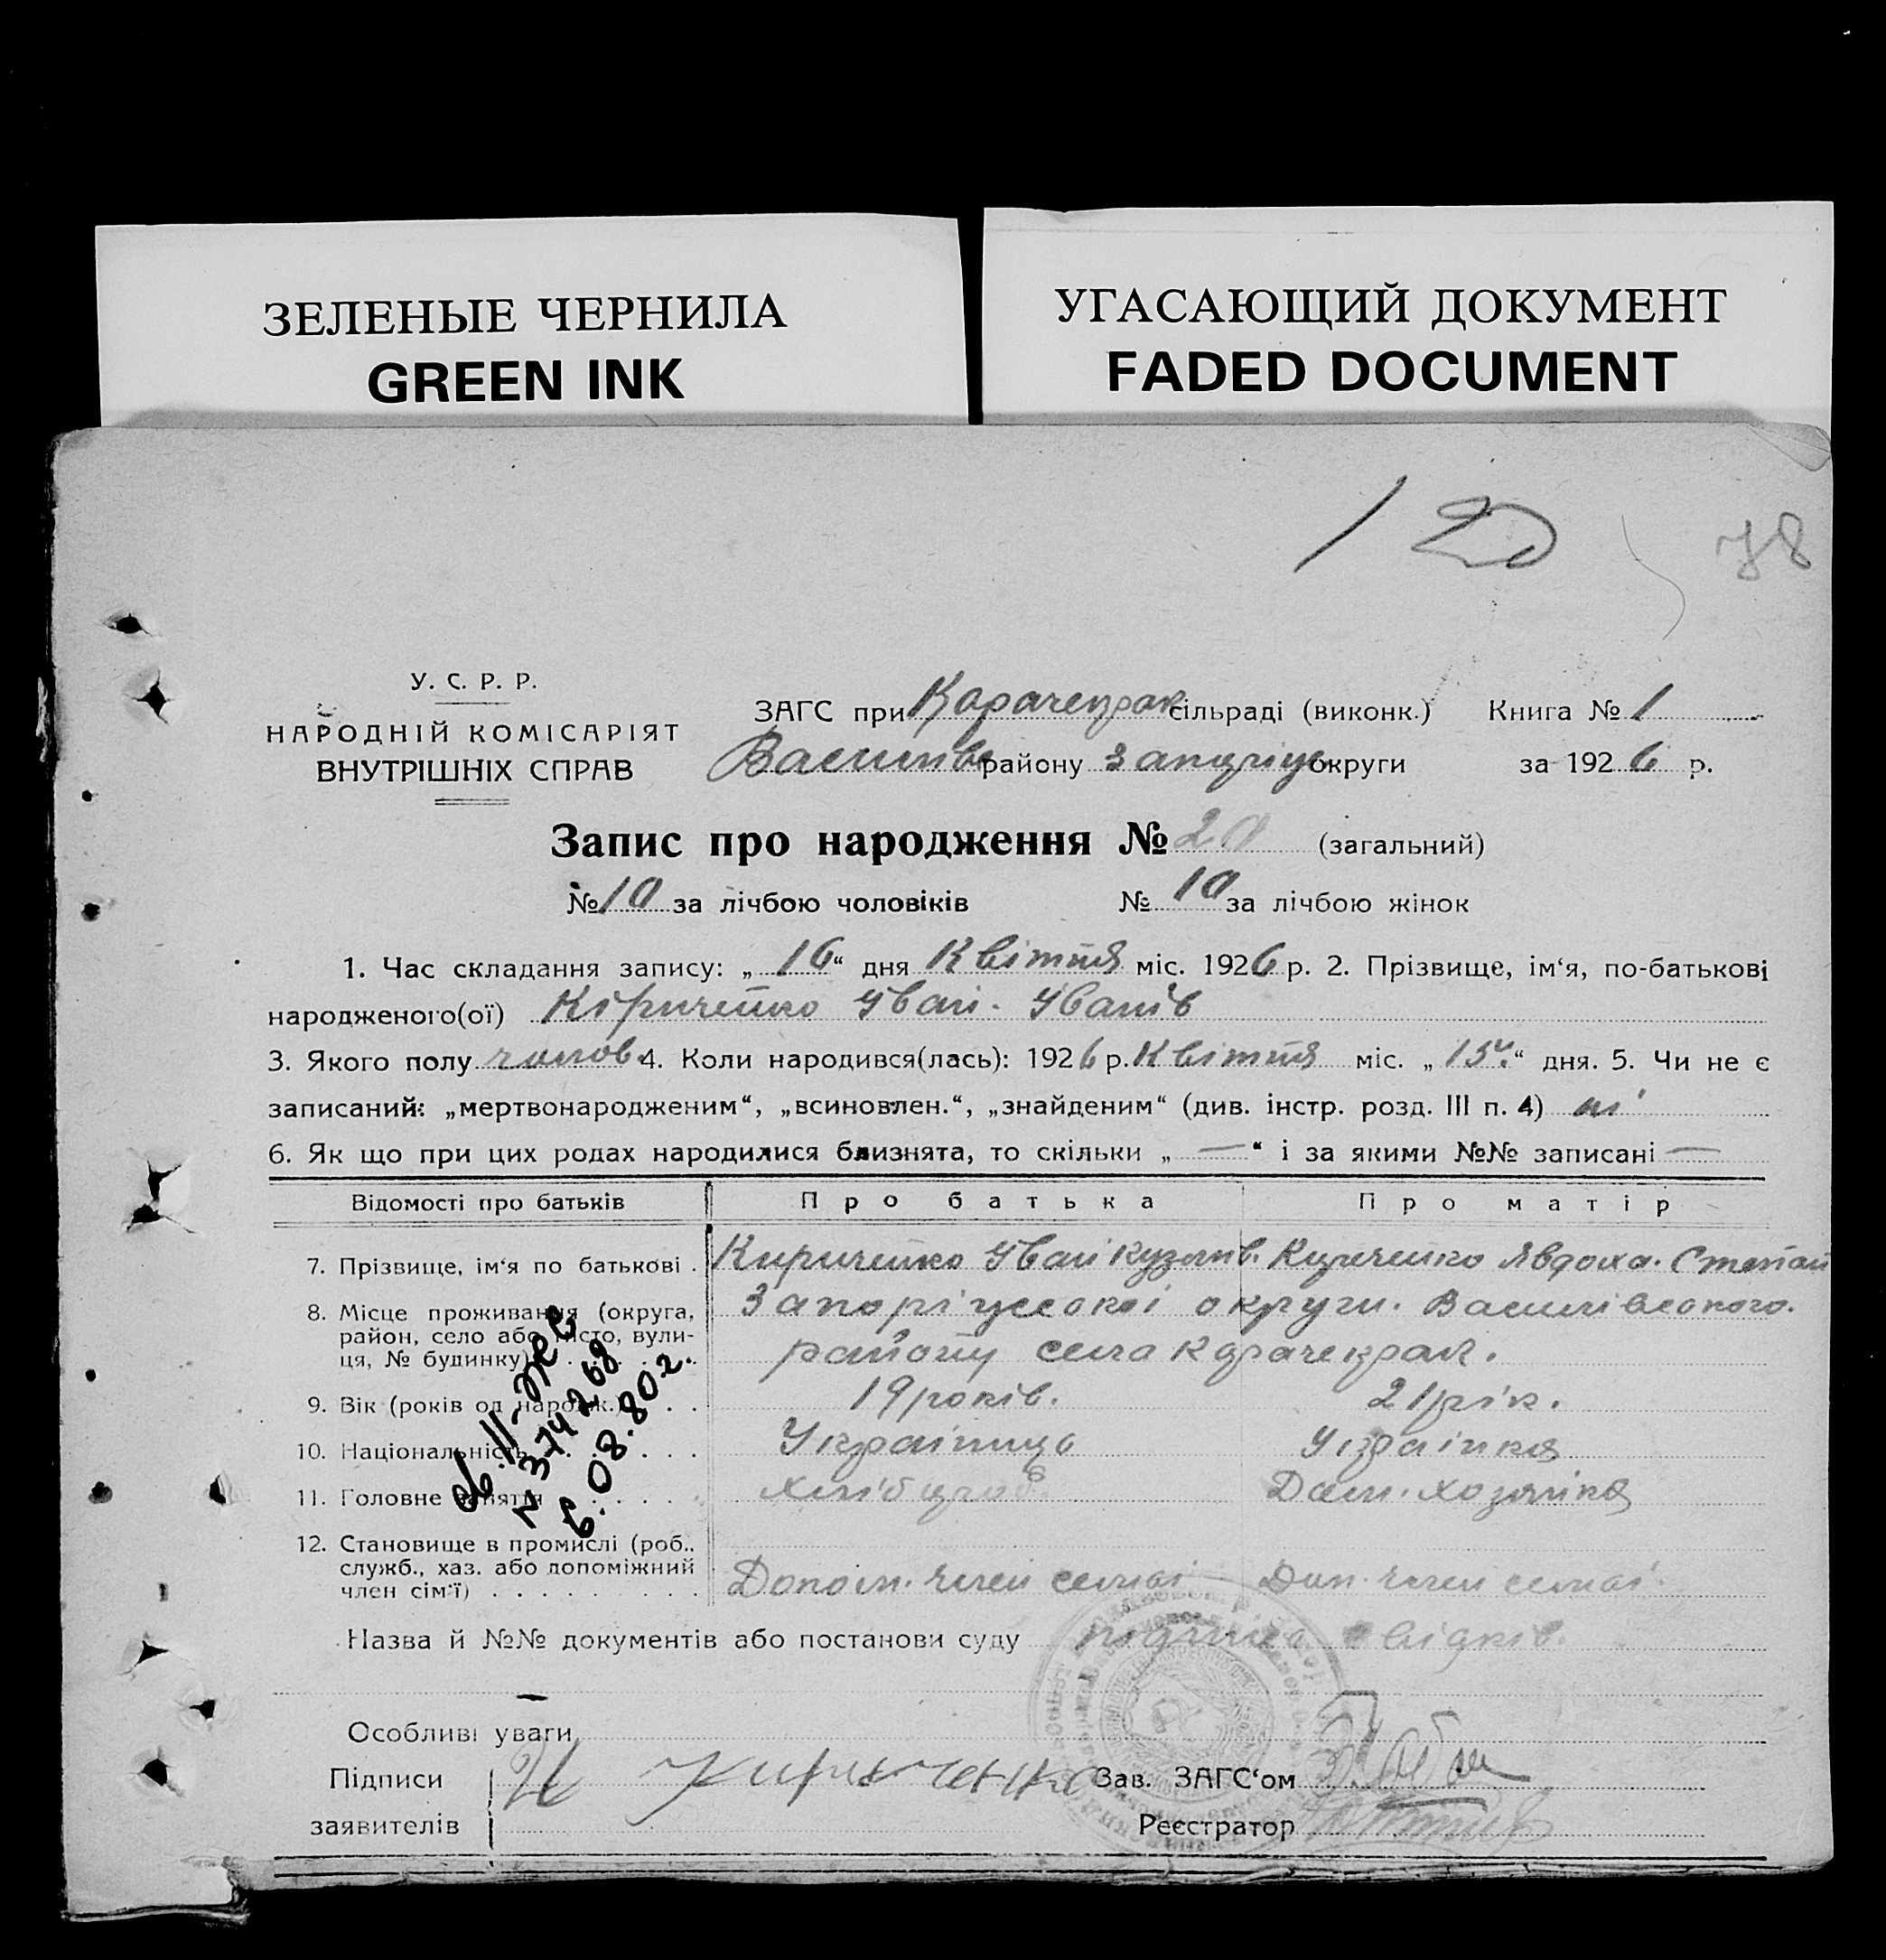 ЗЕЛЕНЫЕ ЧЕРНИЛА
GREEN INK
УГАСАЮЩИЙ ДОКУМЕНТ
FADED DOCUMENT
120
78
У. С. Р. Р.
НАРОДНІЙ КОМІСАРІЯТ
ВНУТРІШНІХ СПРАВ
ЗАГС при Карачекрак сільраді (виконк.) Книга № 1
Василів району Запоріц округи за 1926 р.
Запис про народження № 20 (загальний)
№ 10 за лічбою чоловіків № 10 за лічбою жінок
1. Час складання запису: „ 16 “ дня Квітня міс. 1926 р. 2. Прізвище, ім‘я, по-батькові
народженого(ої) Кіриченко Іван. Іванів
3. Якого полу чолов. 4. Коли народився(лась): 1926 р. Квітня міс. „ 15 “ дня. 5. Чи не є
записаний: „мертвонародженим“, „всиновлен.“, „знайденим“ (див. інстр. розд. III п. 4) ні
6. Як що при цих родах народилися близнята, то скільки „ — “ і за якими №№ записані —
Відомості про батьків Про батька Про матір
7. Прізвище, ім‘я по батькові . Кириченко Іван Кузьмів. Кириченко Явдоха. Степан
8. Місце проживання (округа, район, село або місто, вулиця, № будинку) Запоріцської округи. Василівського.
району села Карачекрак.
9. Вік (років од народж.) . . 19 років. 21 рік.
10. Національність . . . . Українець Українка
11. Головне заняття . . . . Хлібороб Дом. хозяйка
12. Становище в промислі (роб.,
служб., хаз. або допоміжний
член сім‘ї) . . . . . . . . . Допом. член семьі Доп. член семьі.
28.08.80г.
Назва й №№ документів або постанови суду підписка свідків.
Особливі уваги
Підписи
заявителів
И Кириченко
Зав. ЗАГС‘ом
Реєстратор